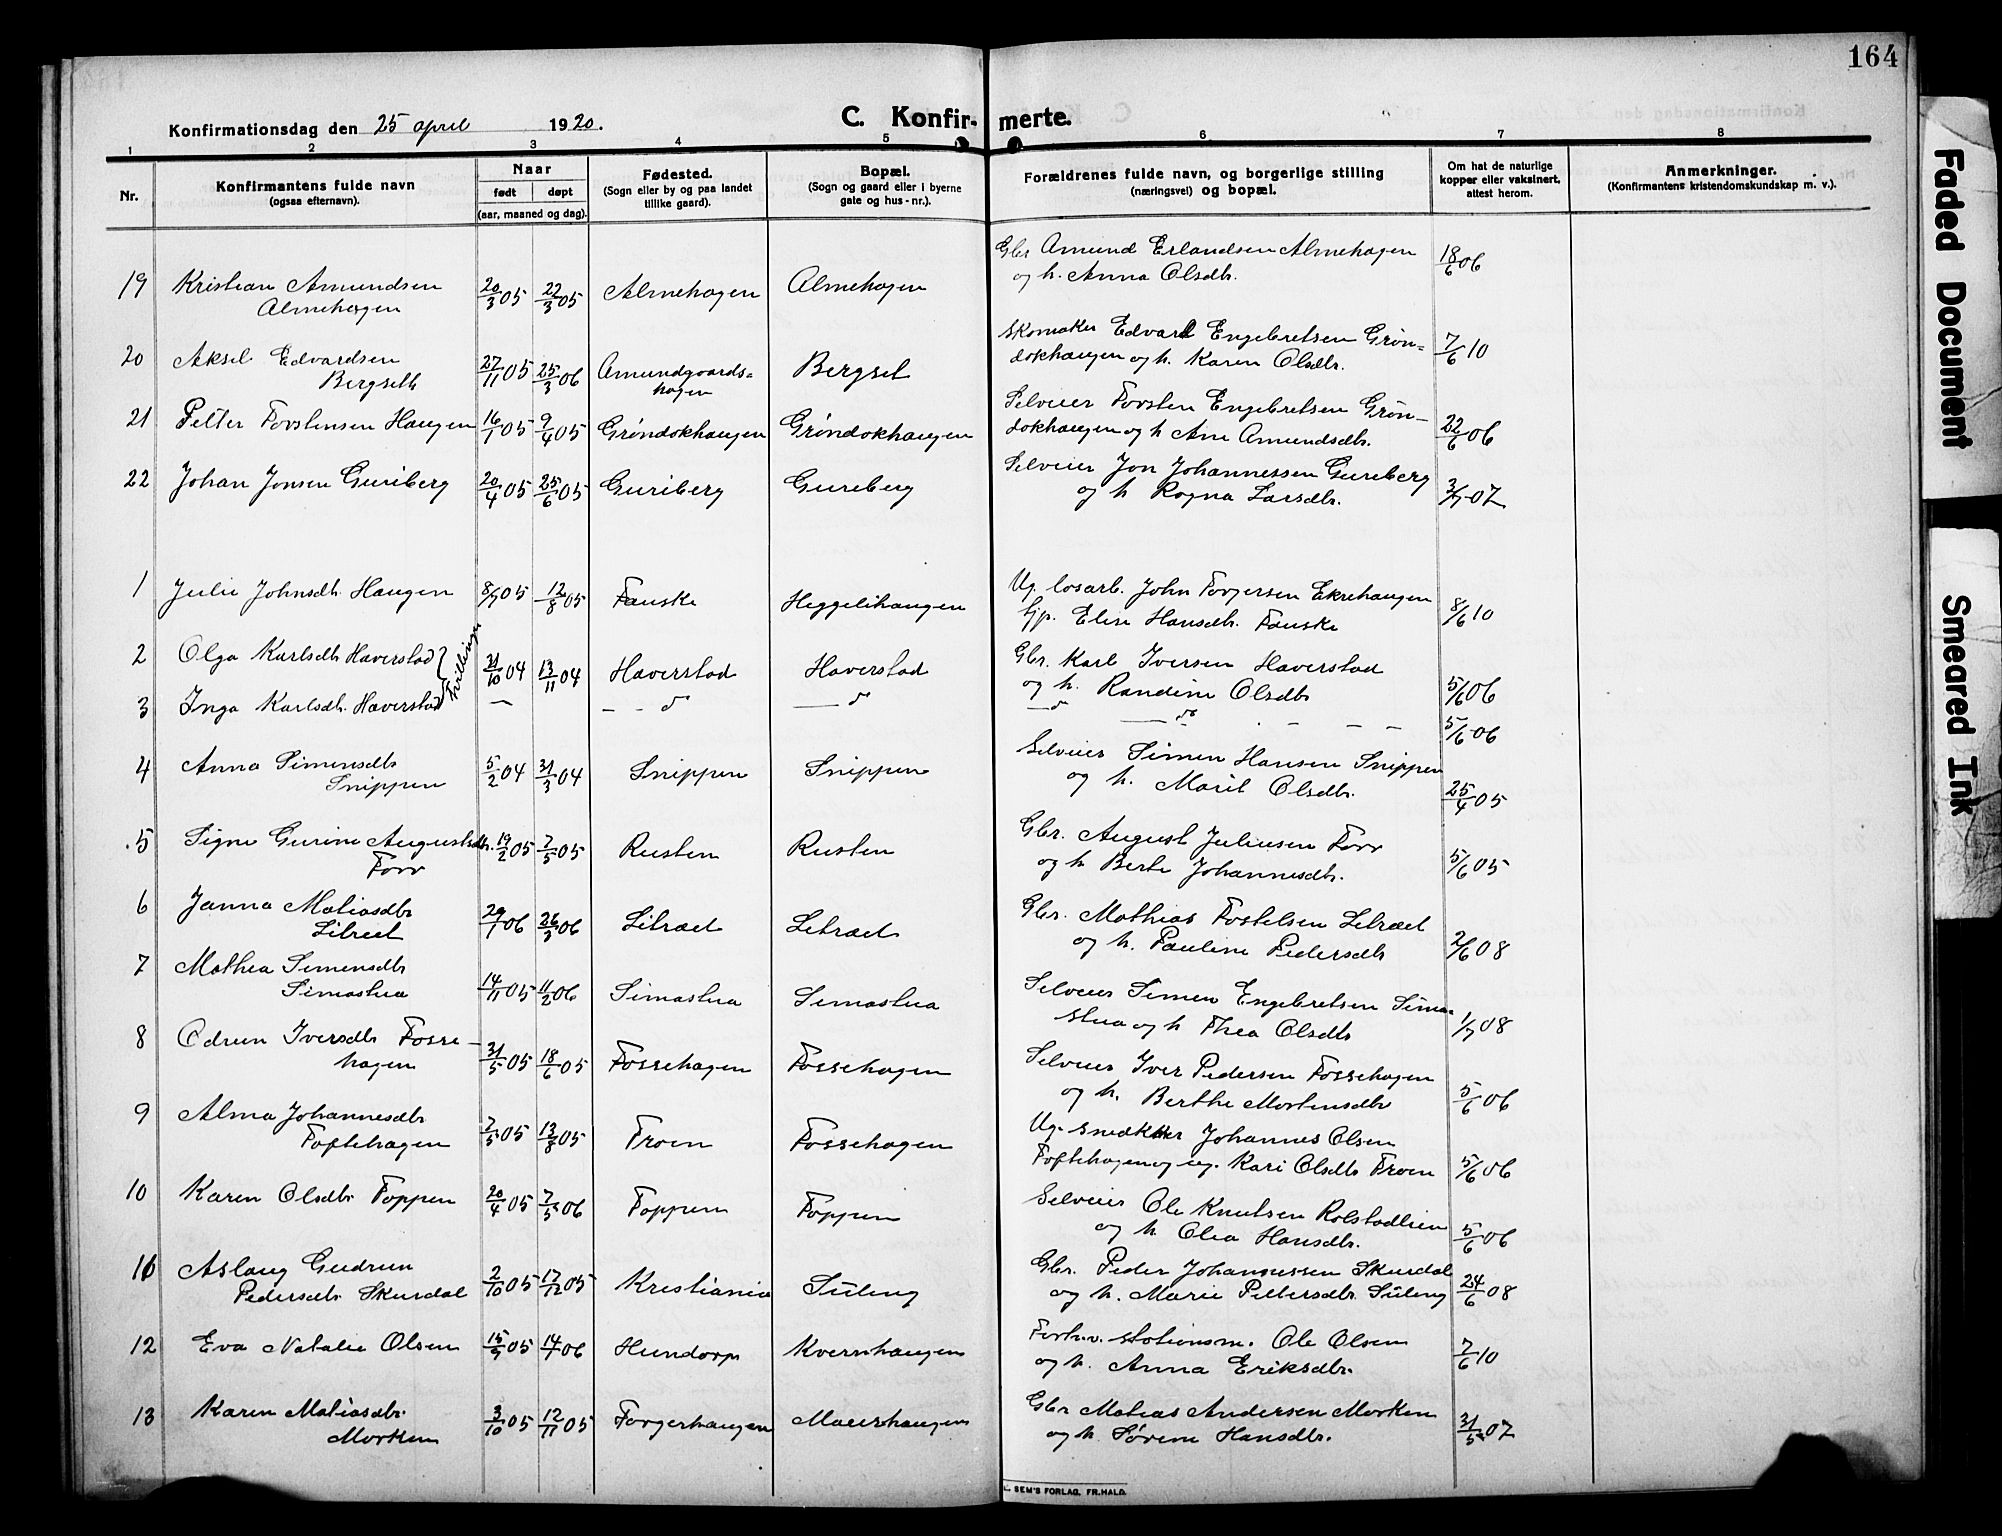 164
Konfirmationsdag den 25 april 1920.
C. Konfirmerte.
1 2 3 4 5 6 7 8
Nr.
Konfirmantens fulde navn
(ogsaa efternavn).
Naar
født døpt
(aar, maaned og dag).
Fødested.
(Sogn eller by og paa landet
tillike gaard).
Bopæl.
(Sogn og gaard eller i byerne
gate og hus-nr.).
Forældrenes fulde navn, og borgerlige stilling
(næringsvei) og bopæl.
Om hat de naturlige
kopper eller vaksinert,
attest herom.
Anmerkninger.
(Konfirmantens kristendomskundskap m. v.).
Gbr Amund Erlandsen Almehagen 18/6 06
og h. Anna Olsdtr.
19 Kristian Amundsen 20/3 05 22/3 05 Almehagen Almehagen
Almehagen
Skomaker Edvard Engebretsen Grøn=
20 Aksel Edvardsen 27/11 05 25/3 06 Amundgaards= Bergset
dokhaugen og h. Karen Olsdtr. 7/6 10
Bergseth hagen
Selveier Torsten Engebretsen Grøn-
21 Petter Torstensen Haugen 16/1 05 9/4 05 Grøndokhaugen Grøndokhaugen
dokhaugen og h Ane Amundsdtr. 22/6 06
Selveier Jon Johannessen Guriberg
22 Johan Jonsen Guriberg 20/4 05 25/6 05 Guriberg Guriberg
og h Rogna Larsdtr. 3/7 07
1 Julie Johnsdtr. Haugen 8/7 05 12/8 05 Fauske Heggelihaugen
Ug. losarb. John Torgersen Ekrehaugen
tjp. Eline Hansdtr. Fauske 8/6 10
2 Olga Karlsdtr Haverstad 31/10 04 13/11 04 Haverstad Haverstad
Tvillinger
Gbr. Karl Iversen Haverstad
og h. Randine Olsdtr 5/6 06
3 Inga Karlsdtr. Haverstad — - - d - — d -
— d - — do - - - 5/6 06
4 Anna Simensdtr 5/2 04 31/3 04 Snippen Snippen
Snippen
Selveier Simen Hansen Snippen
og h. Marit Olsdtr. 25/4 05
5 Signe Gurine Augustsdtr. 19/2 05 7/5 05 Rusten Rusten
Forr
Gbr. August Juliusen Forr
og h Berte Johannesdtr. 5/6 05
6 Janna Matiasdtr 29/1 06 26/3 06 Litræet Litræet
Litreet
Gbr. Mathias Tostelsen Litræet
og h. Pauline Pedersdtr 2/6 08
7 Mathea Simensdtr 14/11 05 11/2 06 Simastua Simastua
Simastua
Selveier Simen Engebretsen Sima-
stua og h Thea Olsdtr 1/7 08
8 Odrun Iversdtr Fosse- 31/5 05 18/6 05 Fossehagen Fossehagen
hagen
Selveier Iver Pedersen Fossehagen
og h. Berthe Mortensdtr 5/6 06
9 Alma Johannesdtr 7/5 05 13/8 05 Troen Fossehagen
Toftehagen
Ug. snedker Johannes Olsen
Toftehagen og ug. Kari Olsdtr Troen 5/6 06
10 Karen Olsdtr Toppen 20/4 05 7/5 06 Toppen Toppen
Selveier Ole Knutsen Rolstadlien
og h. Olea Hansdtr. 5/6 06
11 Aslaug Gudrun 2/10 05 17/12 05 Kristiania Sületg
Pedersdtr. Skurdal
Gbr. Peder Johannessen Skurdal
og h. Marie Pettersdtr. 24/6 08
12 Eva Natalie Olsen 15/9 05 14/1 06 Hundorp Kvernhaugen
Forhv. stationsm. Ole Olsen
og h. Anna Eriksdtr. 7/6 10
13 Karen Matiasdtr. 3/10 05 12/11 05 Torgerhaugen Maurhaugen
Morken
Gbr Matias Andersen Morken
og h. Sørine Hansdtr. 31/5 07
SEM'S FORLAG, FR.HALD.
Faded Document
Smeared Ink